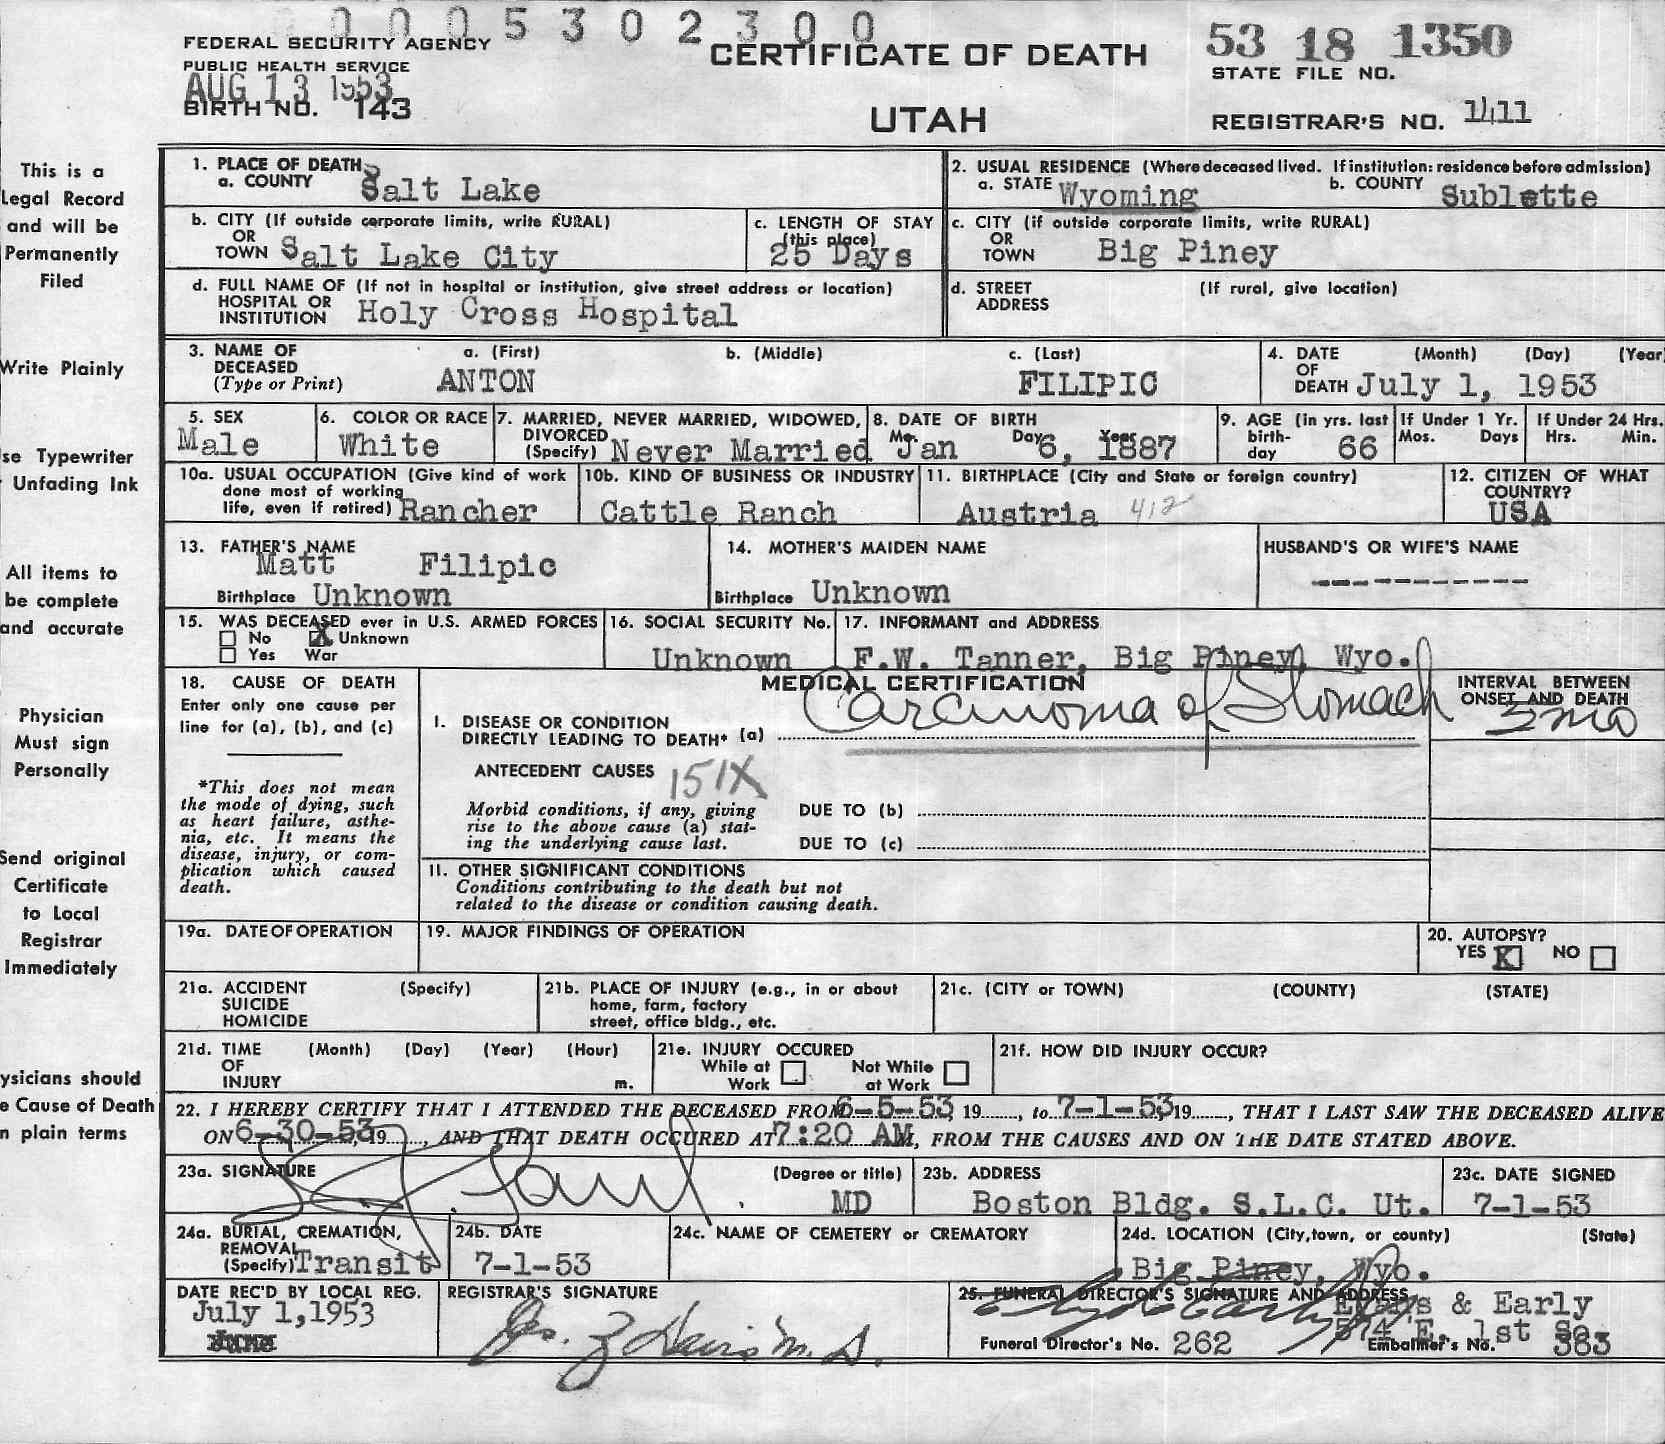 0005302300
FEDERAL SECURITY AGENCY
PUBLIC HEALTH SERVICE
AUG 13 1953
BIRTH NO. 143
CERTIFICATE OF DEATH
UTAH
53 18 1350
STATE FILE NO.
REGISTRAR'S NO. 1411
This is a
Legal Record
and will be
Permanently
Filed
Write Plainly
se Typewriter
Unfading Ink
All items to
be complete
and accurate
Physician
Must sign
Personally
Send original
Certificate
to Local
Registrar
Immediately
ysicians should
e Cause of Death
n plain terms
1. PLACE OF DEATH
a. COUNTY Salt Lake
2. USUAL RESIDENCE (Where deceased lived. If institution: residence before admission)
a. STATE Wyoming b. COUNTY Sublette
b. CITY (If outside corporate limits, write RURAL)
OR
TOWN Salt Lake City
c. LENGTH OF STAY
(this place)
25 Days
c. CITY (if outside corporate limits, write RURAL)
OR
TOWN Big Piney
d. FULL NAME OF (If not in hospital or institution, give street address or location)
HOSPITAL OR
INSTITUTION Holy Cross Hospital
d. STREET (If rural, give location)
ADDRESS
3. NAME OF DECEASED (Type or Print)
a. (First) b. (Middle) c. (Last)
ANTON FILIPIC
4. DATE OF DEATH (Month) (Day) (Year
July 1, 1953
5. SEX
Male
6. COLOR OR RACE
White
7. MARRIED, NEVER MARRIED, WIDOWED,
DIVORCED
(Specify) Never Married
8. DATE OF BIRTH
Mo. Day Year
Jan 6, 1887
9. AGE (in yrs. last
birth-
day 66
If Under 1 Yr.
Mos. Days
If Under 24 Hrs.
Hrs. Min.
10a. USUAL OCCUPATION (Give kind of work
done most of working
life, even if retired) Rancher
10b. KIND OF BUSINESS OR INDUSTRY
Cattle Ranch
11. BIRTHPLACE (City and State or foreign country)
Austria 412
12. CITIZEN OF WHAT
COUNTRY?
USA
13. FATHER'S NAME
Matt Filipic
Birthplace Unknown
14. MOTHER'S MAIDEN NAME
Birthplace Unknown
HUSBAND'S OR WIFE'S NAME
-----------
15. WAS DECEASED ever in U.S. ARMED FORCES
No X Unknown
Yes War
16. SOCIAL SECURITY No.
Unknown
17. INFORMANT and ADDRESS
F.W. Tanner, Big Piney, Wyo.
18. CAUSE OF DEATH
Enter only one cause per
line for (a), (b), and (c)
*This does not mean
the mode of dying, such
as heart failure, asthe-
nia, etc. It means the
disease, injury, or com-
plication which caused
death.
MEDICAL CERTIFICATION
I. DISEASE OR CONDITION
DIRECTLY LEADING TO DEATH* (a) Carcinoma of Stomach
INTERVAL BETWEEN
ONSET AND DEATH
3 mo
ANTECEDENT CAUSES 151X
Morbid conditions, if any, giving
rise to the above cause (a) stat-
ing the underlying cause last.
DUE TO (b)
DUE TO (c)
II. OTHER SIGNIFICANT CONDITIONS
Conditions contributing to the death but not
related to the disease or condition causing death.
19a. DATE OF OPERATION
19. MAJOR FINDINGS OF OPERATION
20. AUTOPSY?
YES X NO
21a. ACCIDENT (Specify)
SUICIDE
HOMICIDE
21b. PLACE OF INJURY (e.g., in or about
home, farm, factory
street, office bldg., etc.
21c. (CITY or TOWN) (COUNTY) (STATE)
21d. TIME (Month) (Day) (Year) (Hour)
OF
INJURY m.
21e. INJURY OCCURED
While at Work Not While at Work
21f. HOW DID INJURY OCCUR?
22. I HEREBY CERTIFY THAT I ATTENDED THE DECEASED FROM 6-5-53, 19......, to 7-1-53, 19......, THAT I LAST SAW THE DECEASED ALIVE
ON 6-30-53, 19......, AND THAT DEATH OCCURED AT 7:20 AM, FROM THE CAUSES AND ON THE DATE STATED ABOVE.
23a. SIGNATURE (Degree or title)
MD
23b. ADDRESS
Boston Bldg. S.L.C. Ut.
23c. DATE SIGNED
7-1-53
24a. BURIAL, CREMATION,
REMOVAL
(Specify) Transit
24b. DATE
7-1-53
24c. NAME OF CEMETERY or CREMATORY
24d. LOCATION (City, town, or county) (State)
Big Piney, Wyo.
DATE REC'D BY LOCAL REG.
July 1,1953
June
REGISTRAR'S SIGNATURE
25. FUNERAL DIRECTOR'S SIGNATURE AND ADDRESS
Evans & Early
574 E. 1st So.
Funeral Director's No. 262 Embalmer's No. 383